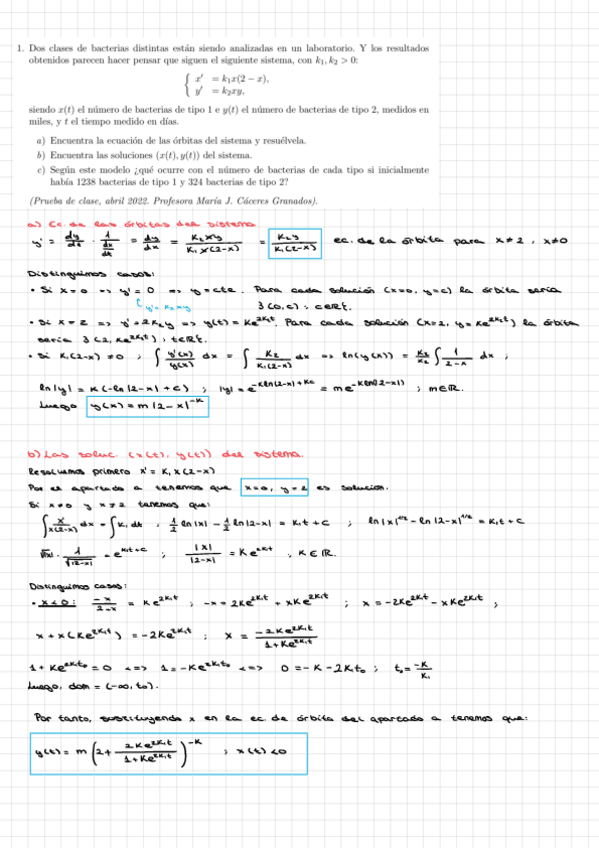 1. Dos clases de bacterias distintas están siendo analizadas en un laboratorio. Y los resultados
obtenidos parecen hacer pensar que siguen el siguiente sistema, con k₁, k₂ > 0:
{ x' = k₁x(2 − x),
y' = k₂xy,
siendo x(t) el número de bacterias de tipo 1 e y(t) el número de bacterias de tipo 2, medidos en
miles, y t el tiempo medido en días.
a) Encuentra la ecuación de las órbitas del sistema y resuélvela.
b) Encuentra las soluciones (x(t), y(t)) del sistema.
c) Según este modelo ¿qué ocurre con el número de bacterias de cada tipo si inicialmente
había 1238 bacterias de tipo 1 y 324 bacterias de tipo 2?
(Prueba de clase, abril 2022. Profesora María J. Cáceres Granados).
a) Ec. de las órbitas del sistema
y' = dy/dt · 1/(dx/dt) = dy/dx = K₂xy/(K₁x(2-x)) = K₂y/(K₁(2-x)) ec. de la órbita para x≠2, x≠0
Distinguimos casos:
• Si x=0 => y'=0 => y=cte. Para cada solución (x=0, y=c) la órbita sería
y'=K₂xy {(0,c) : c∈R}.
• Si x=2 => y'=2K₂y => y(t)=Ke^(2K₂t). Para cada solución (x=2, y=Ke^(2K₂t)) la órbita
sería {(2, Ke^(2K₂t)) : t∈R}.
• Si K₁(2-x) ≠ 0, ∫ y'(x)/y(x) dx = ∫ K₂/(K₁(2-x)) dx => ln(y(x)) = K₂/K₁ ∫ 1/(2-x) dx ;
ln|y| = K(-ln|2-x| + C) ; |y| = e^(-Kln|2-x|+KC) = me^(-Kln(|2-x|)) ; m∈R.
Luego y(x) = m|2-x|^(-K)
b) Las soluc. (x(t), y(t)) del sistema.
Resolvemos primero x' = K₁x(2-x)
Por el apartado a tenemos que x=0, y=2 es solución.
Si x≠0 y x≠2 tenemos que:
∫ x/(x(2-x)) dx = ∫ K₁ dt ; 1/2 ln|x| - 1/2 ln|2-x| = K₁t + C ; ln|x|^(1/2) - ln|2-x|^(1/2) = K₁t + C
√|x| · 1/√|2-x| = e^(K₁t+C) ; |x|/|2-x| = Ke^(2K₁t) , K∈R.
Distinguimos casos:
• x<0: -x/(2-x) = Ke^(2K₁t) ; -x = 2Ke^(2K₁t) + xKe^(2K₁t) ; x = -2Ke^(2K₁t) - xKe^(2K₁t) ;
x + x(Ke^(2K₁t)) = -2Ke^(2K₁t) ; x = -2Ke^(2K₁t)/(1+Ke^(2K₁t))
1+Ke^(2K₁t₀) = 0 <=> 1 = -Ke^(2K₁t₀) <=> 0 = -K - 2K₁t₀ ; t₀ = -K/K₁
Luego, dom = (-∞, t₀).
Por tanto, sustituyendo x en la ec de órbita del apartado a tenemos que:
y(t) = m (2 + 2Ke^(2K₁t)/(1+Ke^(2K₁t)))^(-K) ; x(t) < 0